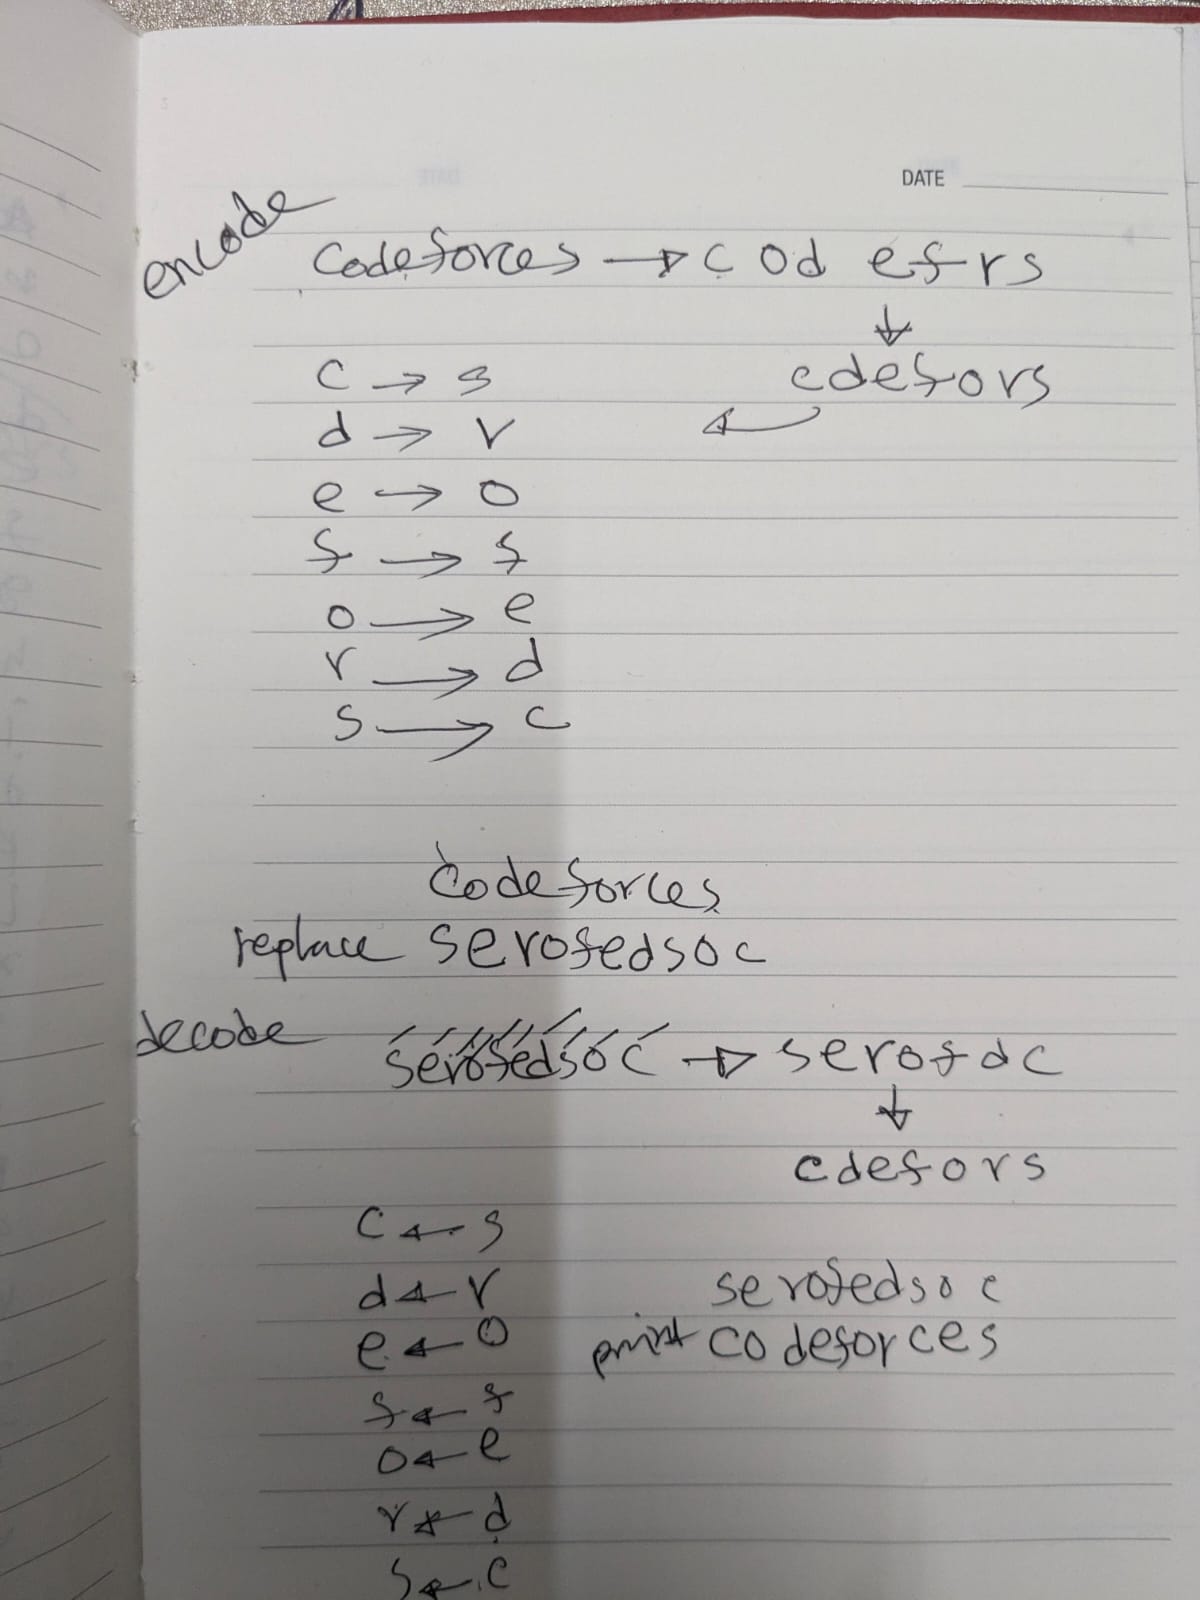 DATE
encode
Codeforces → c o d e f r s
↓
c d e f o r s
c → s
d → r
e → o
f → f
o → e
r → d
s → c
Codeforces
replace serofedsoc
decode serofedsoc → s e r o f d c
↓
c d e f o r s
c ← s
d ← r
serofedsoc
e ← o
print codeforces
f ← f
o ← e
r ← d
s ← c